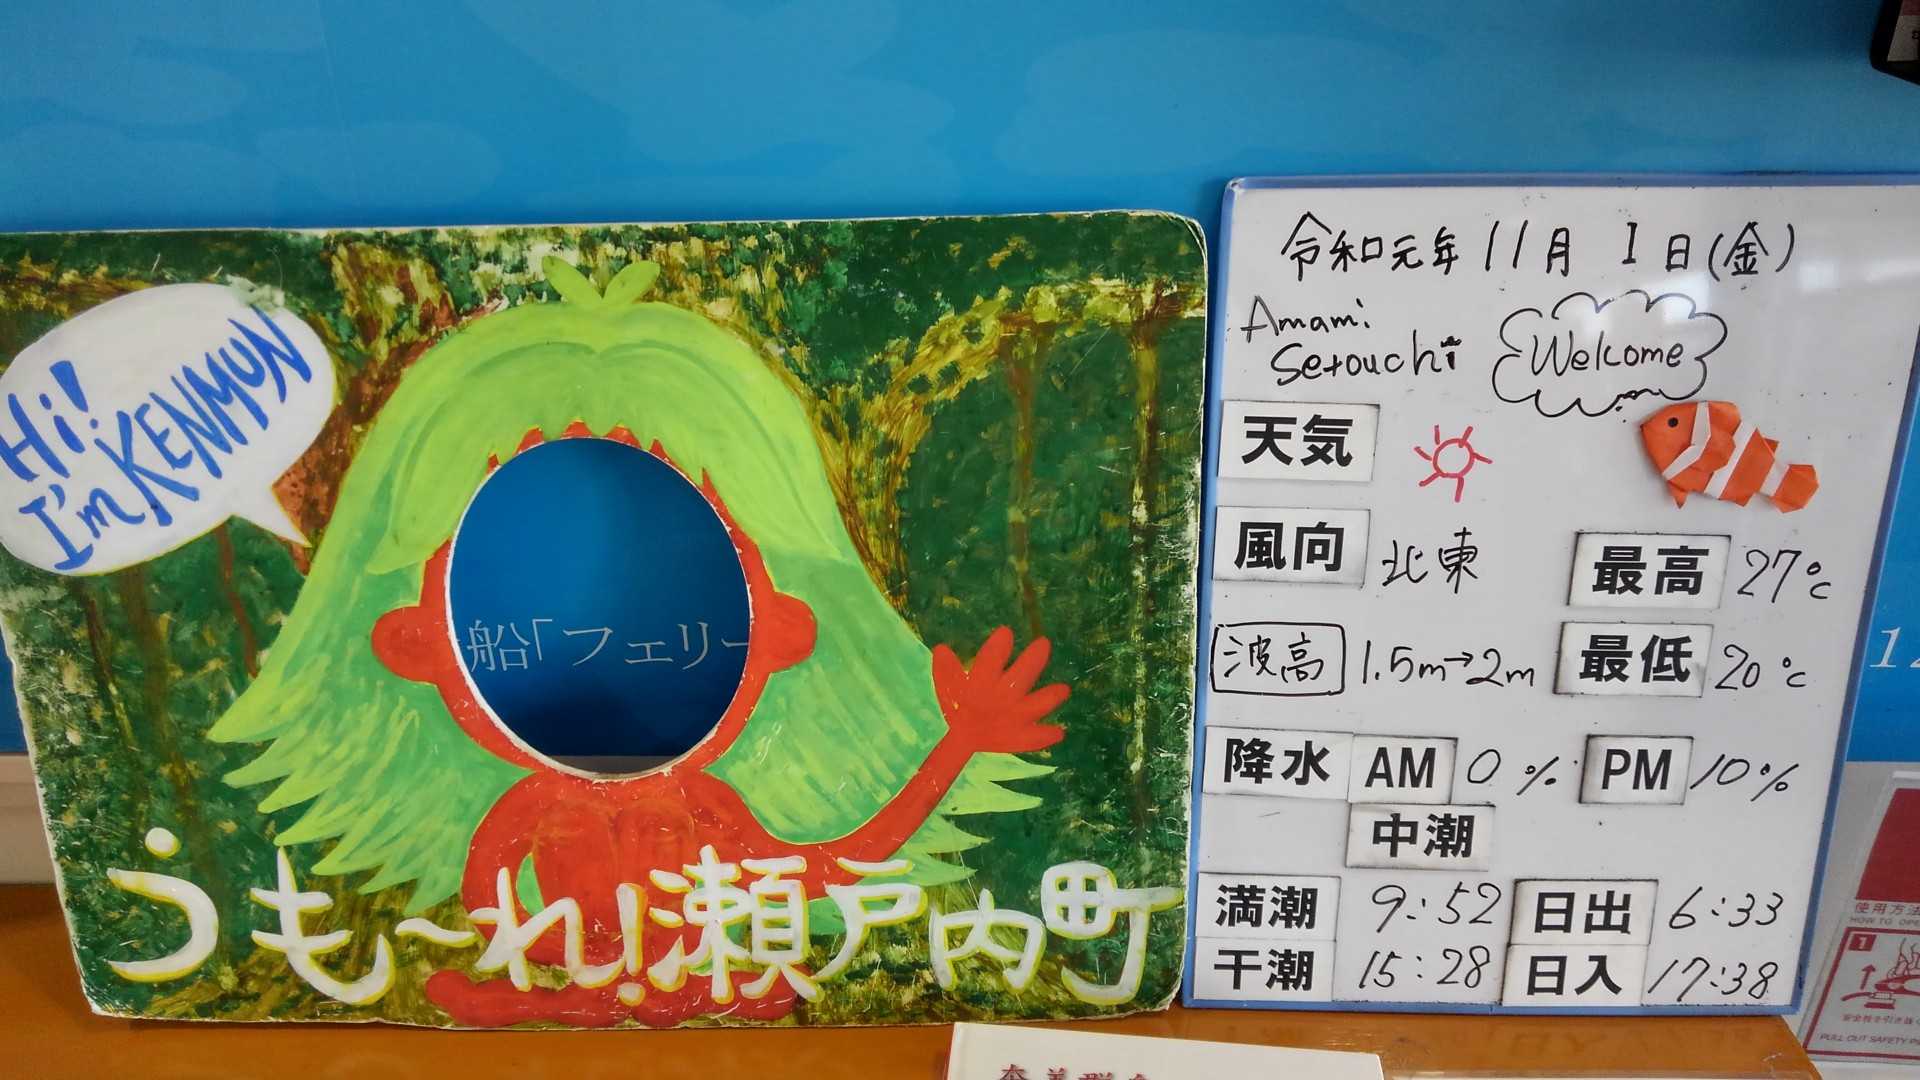 Hi!
I'm KENMUN
船「フェリー
うも～れ!瀬戸内町
令和元年 11月 1日(金)
Amami
Setouchi
Welcome
天気
風向 北東
最高 27℃
波高 1.5m→2m
最低 20℃
降水 AM 0% PM 10%
中潮
満潮 9:52 日出 6:33
干潮 15:28 日入 17:38
使用方法
HOW TO
1
PULL OUT SAFETY